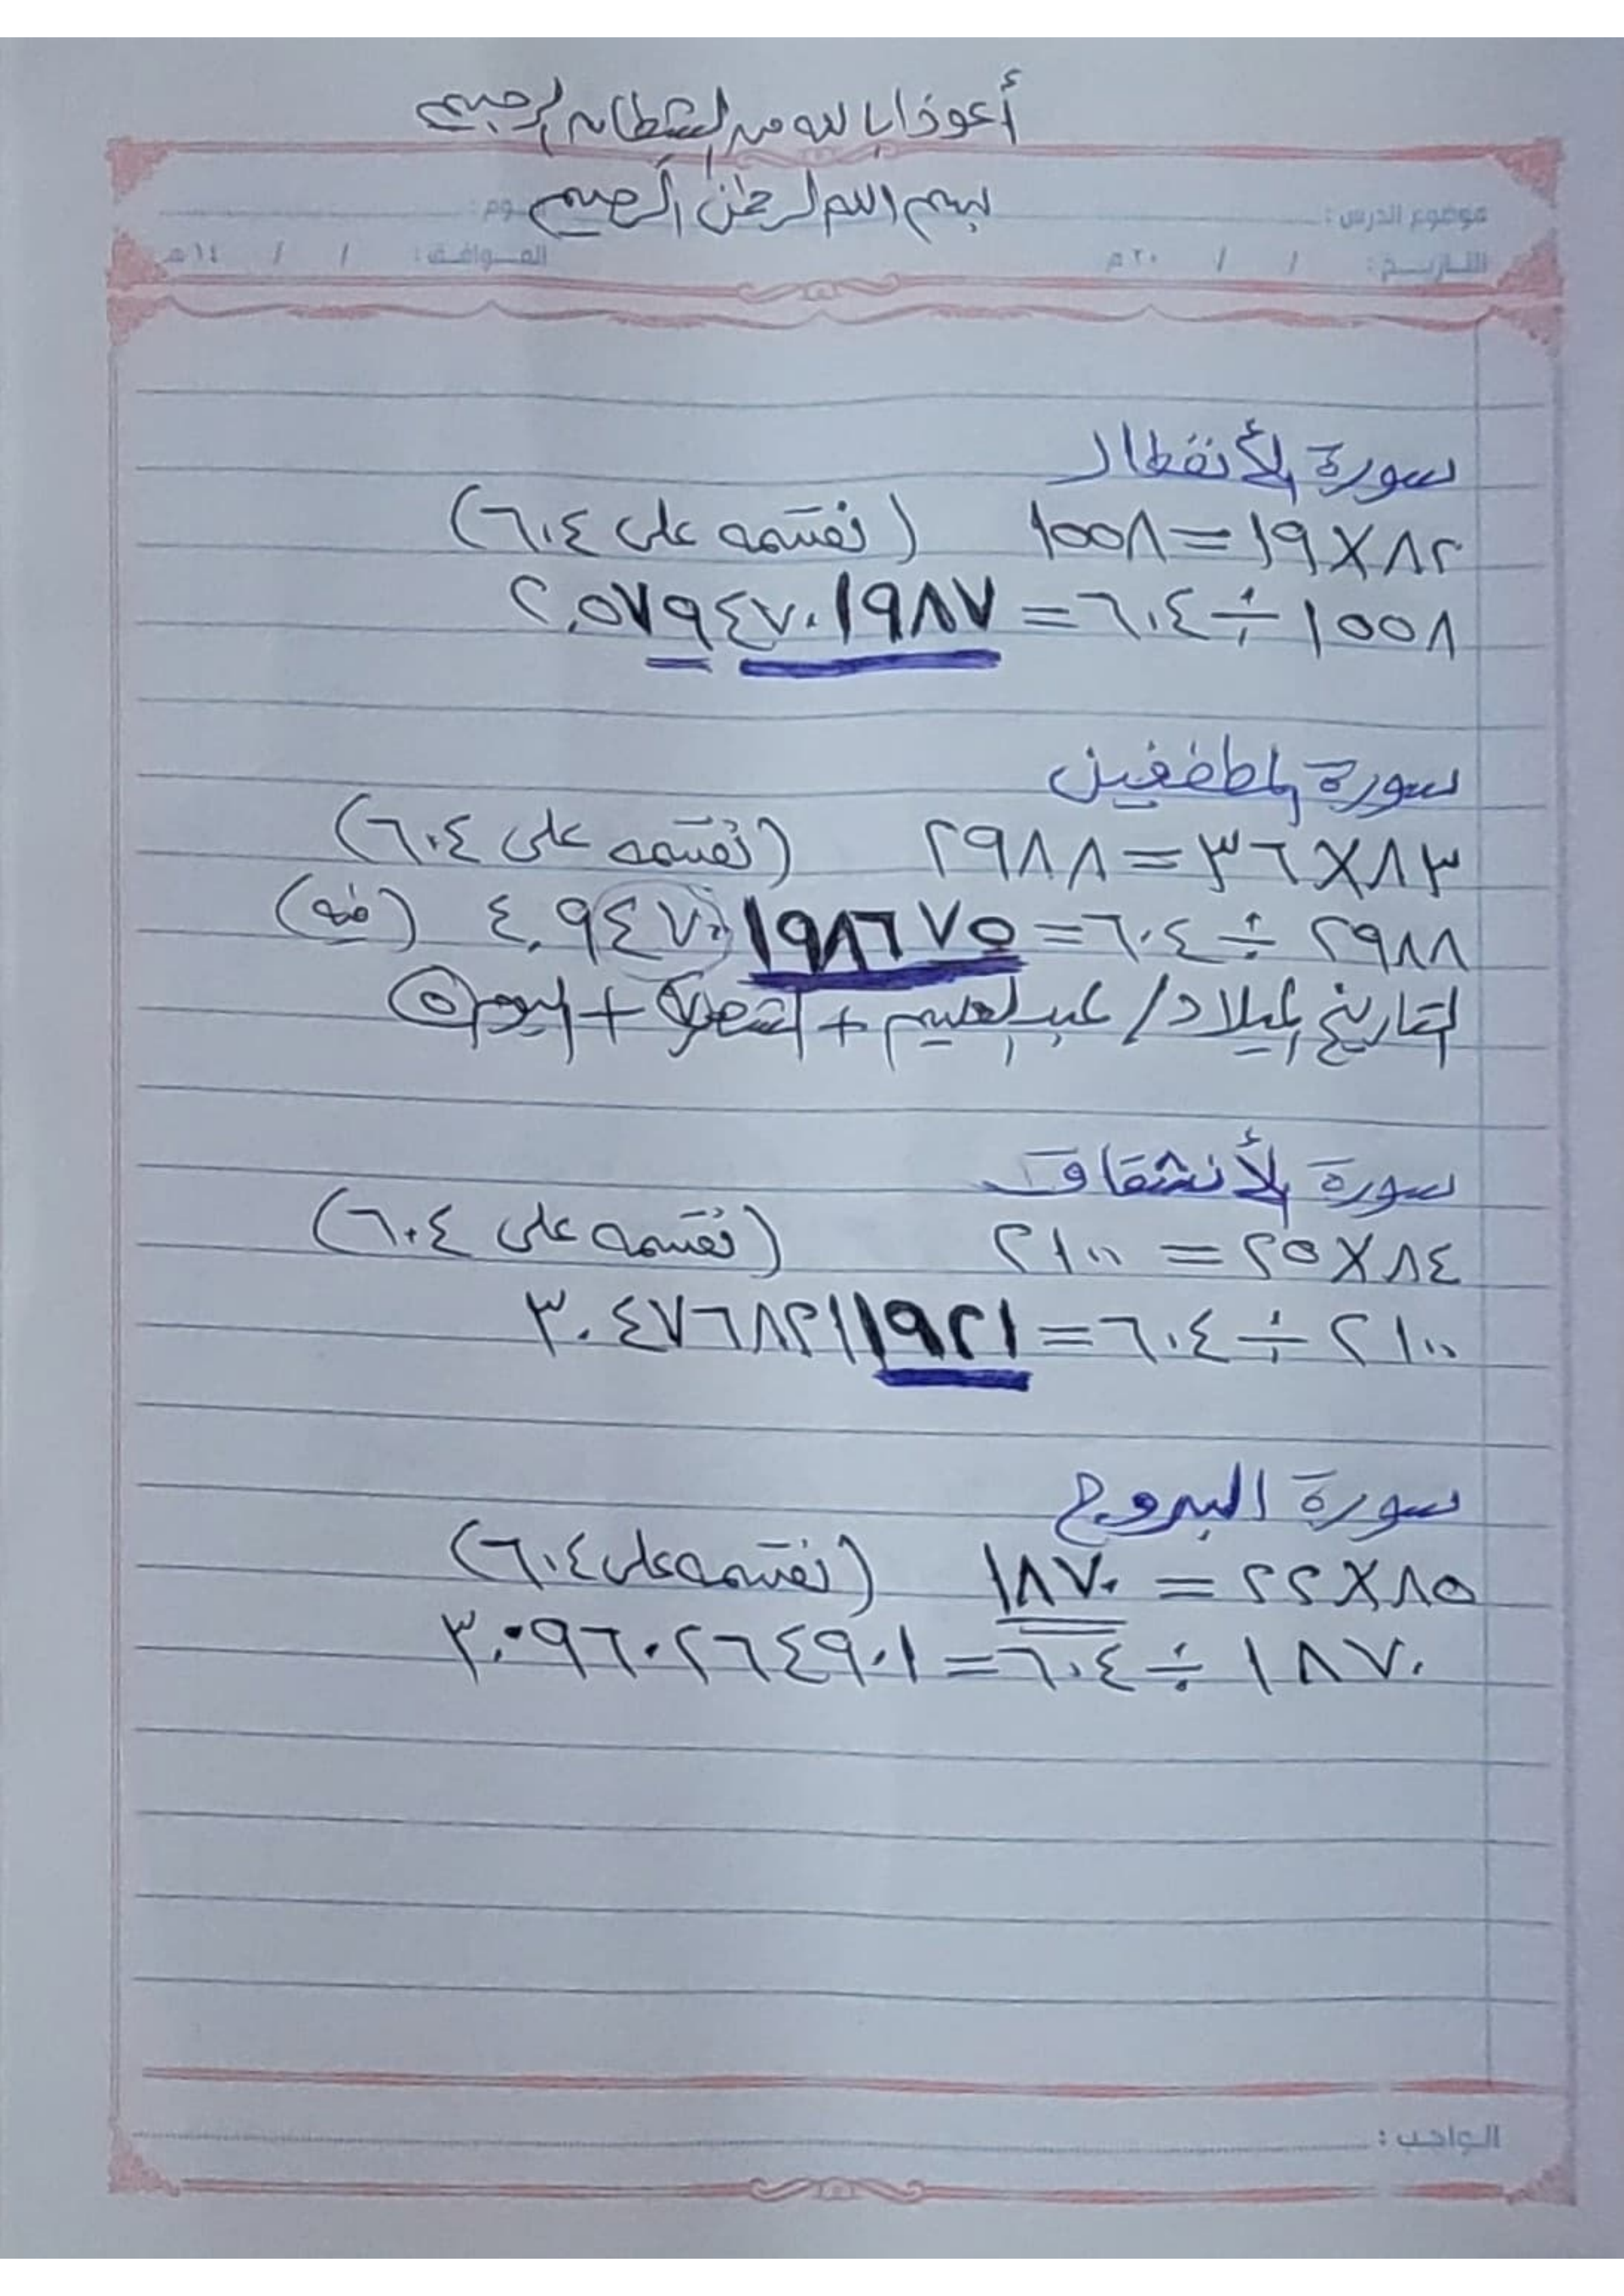 أعوذ بالله من الشيطان الرجيم
بسم الله الرحمن الرحيم
موضوع الدرس :
اليوم :
التاريخ : / / ٢٠م
الموافق : / / ١٤هـ
سورة الأنفطار
٨٢×١٩=١٥٥٨ (نقسمه على ٦٠٤)
١٥٥٨÷٦٠٤=٢,٥٧٩٤٧٠١٩٨٧
سورة المطففين
٨٣×٣٦=٢٩٨٨ (نقسمه على ٦٠٤)
٢٩٨٨÷٦٠٤=٤,٩٤٧٠١٩٨٦٧٥ (فيه)
التاريخ الميلاد/ عبدالعليم + الشهر + اليوم ٥
سورة الأنشقاق
٨٤×٢٥=٢١٠٠ (نقسمه على ٦٠٤)
٢١٠٠÷٦٠٤=٣.٤٧٦٨٢١١٩٢١
سورة البروج
٨٥×٢٢=١٨٧٠ (نقسمه على ٦٠٤)
١٨٧٠÷٦٠٤=٣,٠٩٦٠٢٦٤٩٠١
الواجب :